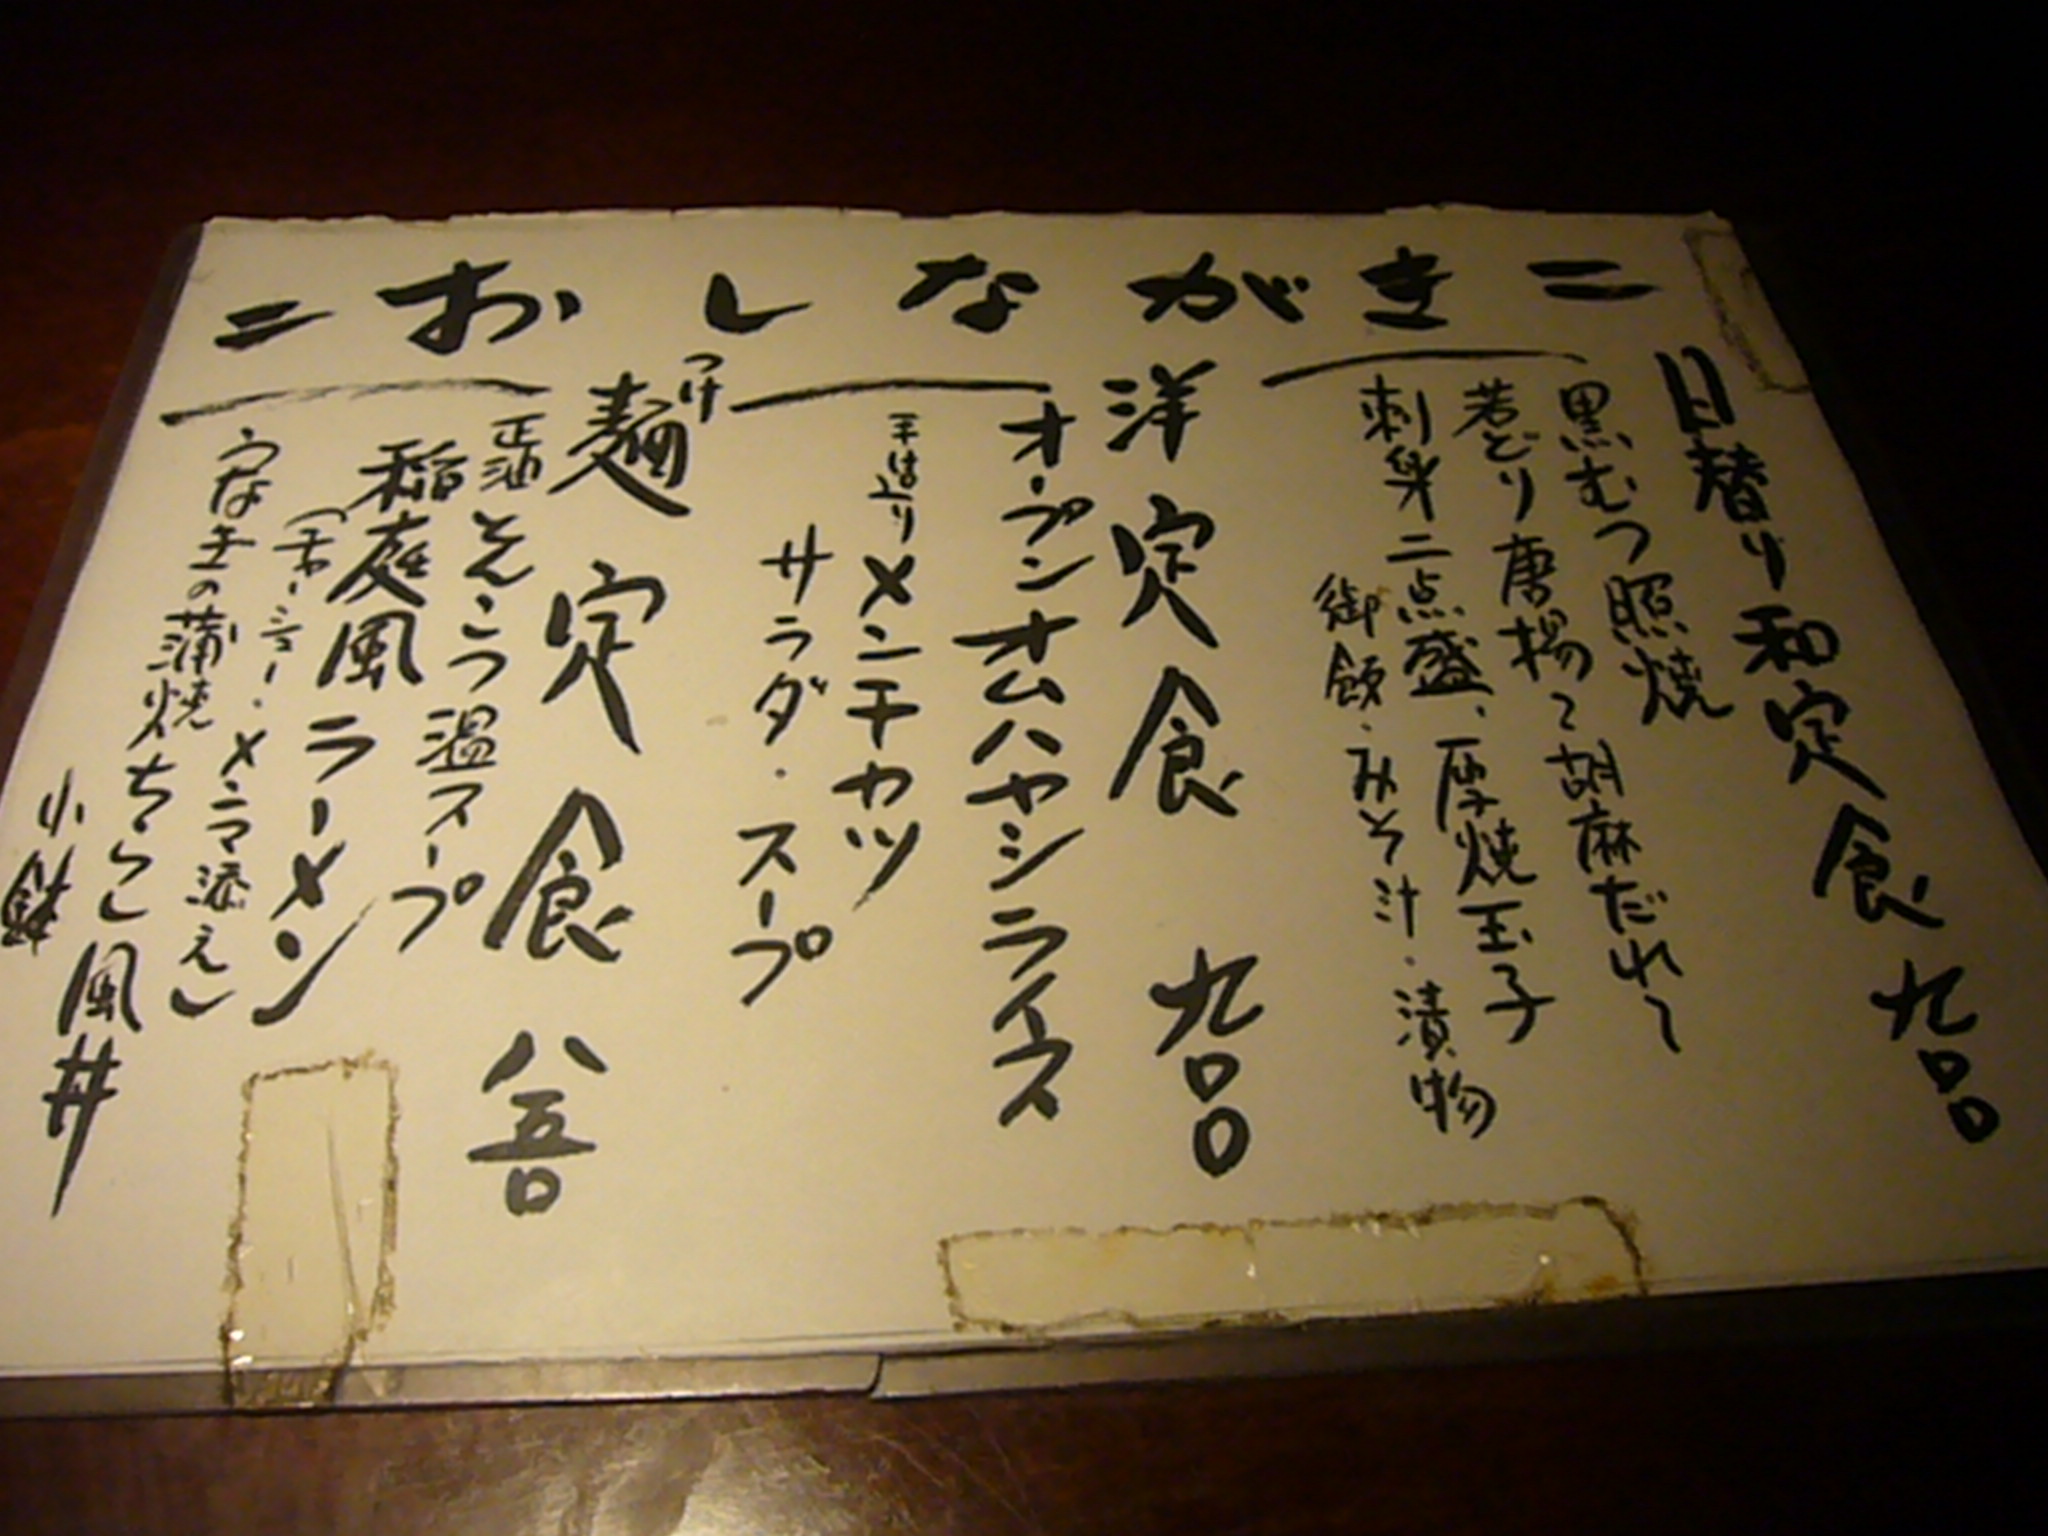 =おしながき=
日替り和定食 九〇〇
黒むつ照焼
若どり唐揚〜胡麻だれ〜
刺身二点盛、厚焼玉子
御飯・みそ汁・漬物
洋定食 九〇〇
オープンオムハヤシライス
又は
メンチカツ
サラダ・スープ
つけ
麺定食 八五〇
正油とんこつ温スープ
稲庭風ラーメン
(チャーシュー・メンマ添え)
うなぎの蒲焼ちらし風丼
小鉢